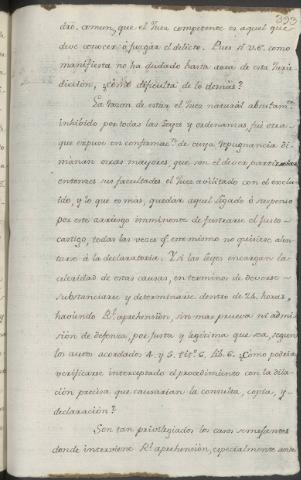 393
dro. comun, que el Juez competente es aquel que
deve conocer ó juzgar el delicto. Pues si V.E. como
manifiesta no ha dudado hasta aora de esta Juris
diccion, ¿como dificulta de lo demas?
La razon de estar el Juez natural absolutamte.
inhibido por todas las Leyes y ordenanzas, fue otra
que expuse en confirmacn. de cuya repugnancia di-
manan otras mayores, que son el dever partir
entonces sus facultades el Juez avilitado con el exclui
do, y lo que es mas, quedar aquel ligado ó suspenso
por este arriesgo imminente de frustrarse el justo
castigo, todas las veces qe. este mismo no quisiere alen-
tarse á la declaratoria. Y si las leyes encargan la
celeridad de estas causas, en terminos de deverse
substanciarse y determinarse dentro de 24. horas,
haviendo Rl. aprehension, sin mas prueva ni admi
sion de defensa, por justa y legitima que sea, segun
los autos acordados 4. y 5. titº. 6. lib. 6. ¿Como podria
verificarse interceptado el procedimiento con la dila-
cion precisa que causarian la consulta, copia, y
declaracion?
Son tan privilegiados los casos semejantes
donde interviene Rl. aprehension, especialmente